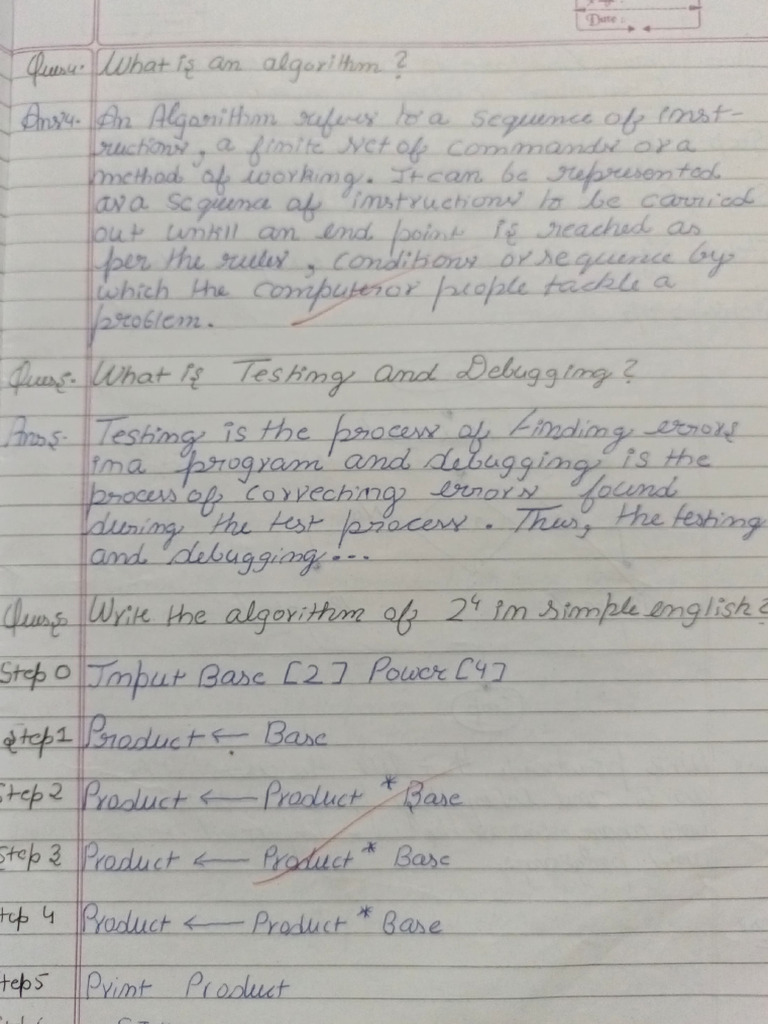 Date :
Ques4. What is an algorithm ?
Ans4. An Algorithm refers to a sequence of inst-
ructions, a finite set of commands or a
method of working. It can be represented
as a sequence of instructions to be carried
out untill an end point is reached as
per the rules, conditions or sequence by
which the computer or people tackle a
problem.
Ques5. What is Testing and Debugging ?
Ans5. Testing is the process of finding errors
in a program and debugging is the
process of correcting errors found
during the test process. Thus, the testing
and debugging...
Ques5 Write the algorithm of 2⁴ in simple english?
Step 0 Input Base [2] Power [4]
Step1 Product ← Base
Step 2 Product ← Product * Base
Step 3 Product ← Product * Base
tep 4 Product ← Product * Base
tep5 Print Product